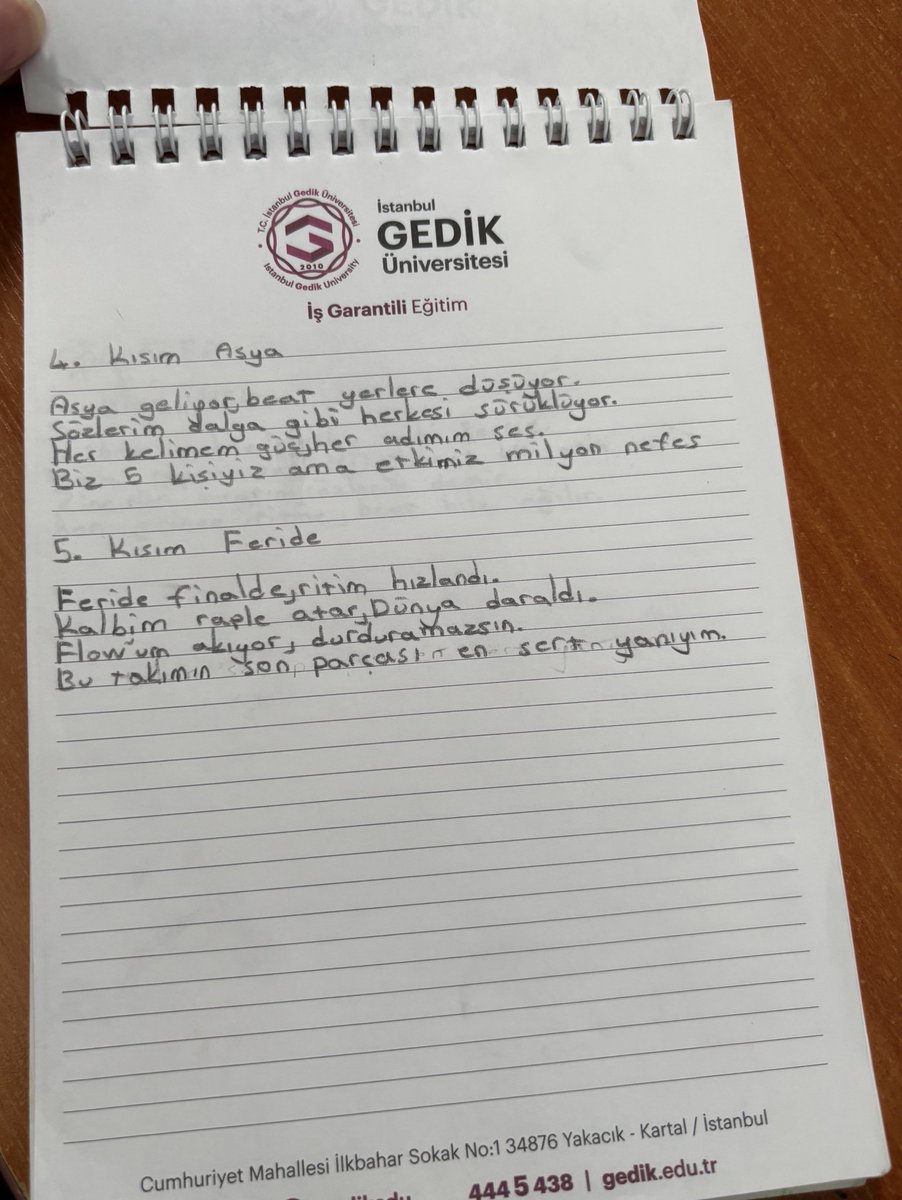 GEDİK
T.C. İstanbul Gedik Üniversitesi
2010
Istanbul Gedik University
İstanbul
GEDİK
Üniversitesi
İş Garantili Eğitim
4. Kısım Asya
Asya geliyor, beat yerlere düşüyor.
Sözlerim dalga gibi herkesi sürüklüyor.
Her kelimem güç, her adımım ses.
Biz 5 kişiyiz ama etkimiz milyon nefes
5. Kısım Feride
Feride finalde, ritim hızlandı.
Kalbim raple atar, Dünya daraldı.
Flow'um akıyor, durduramazsın.
Bu takımın son parçası en sert yanıyım.
Cumhuriyet Mahallesi İlkbahar Sokak No:1 34876 Yakacık - Kartal / İstanbul
444 5 438 | gedik.edu.tr